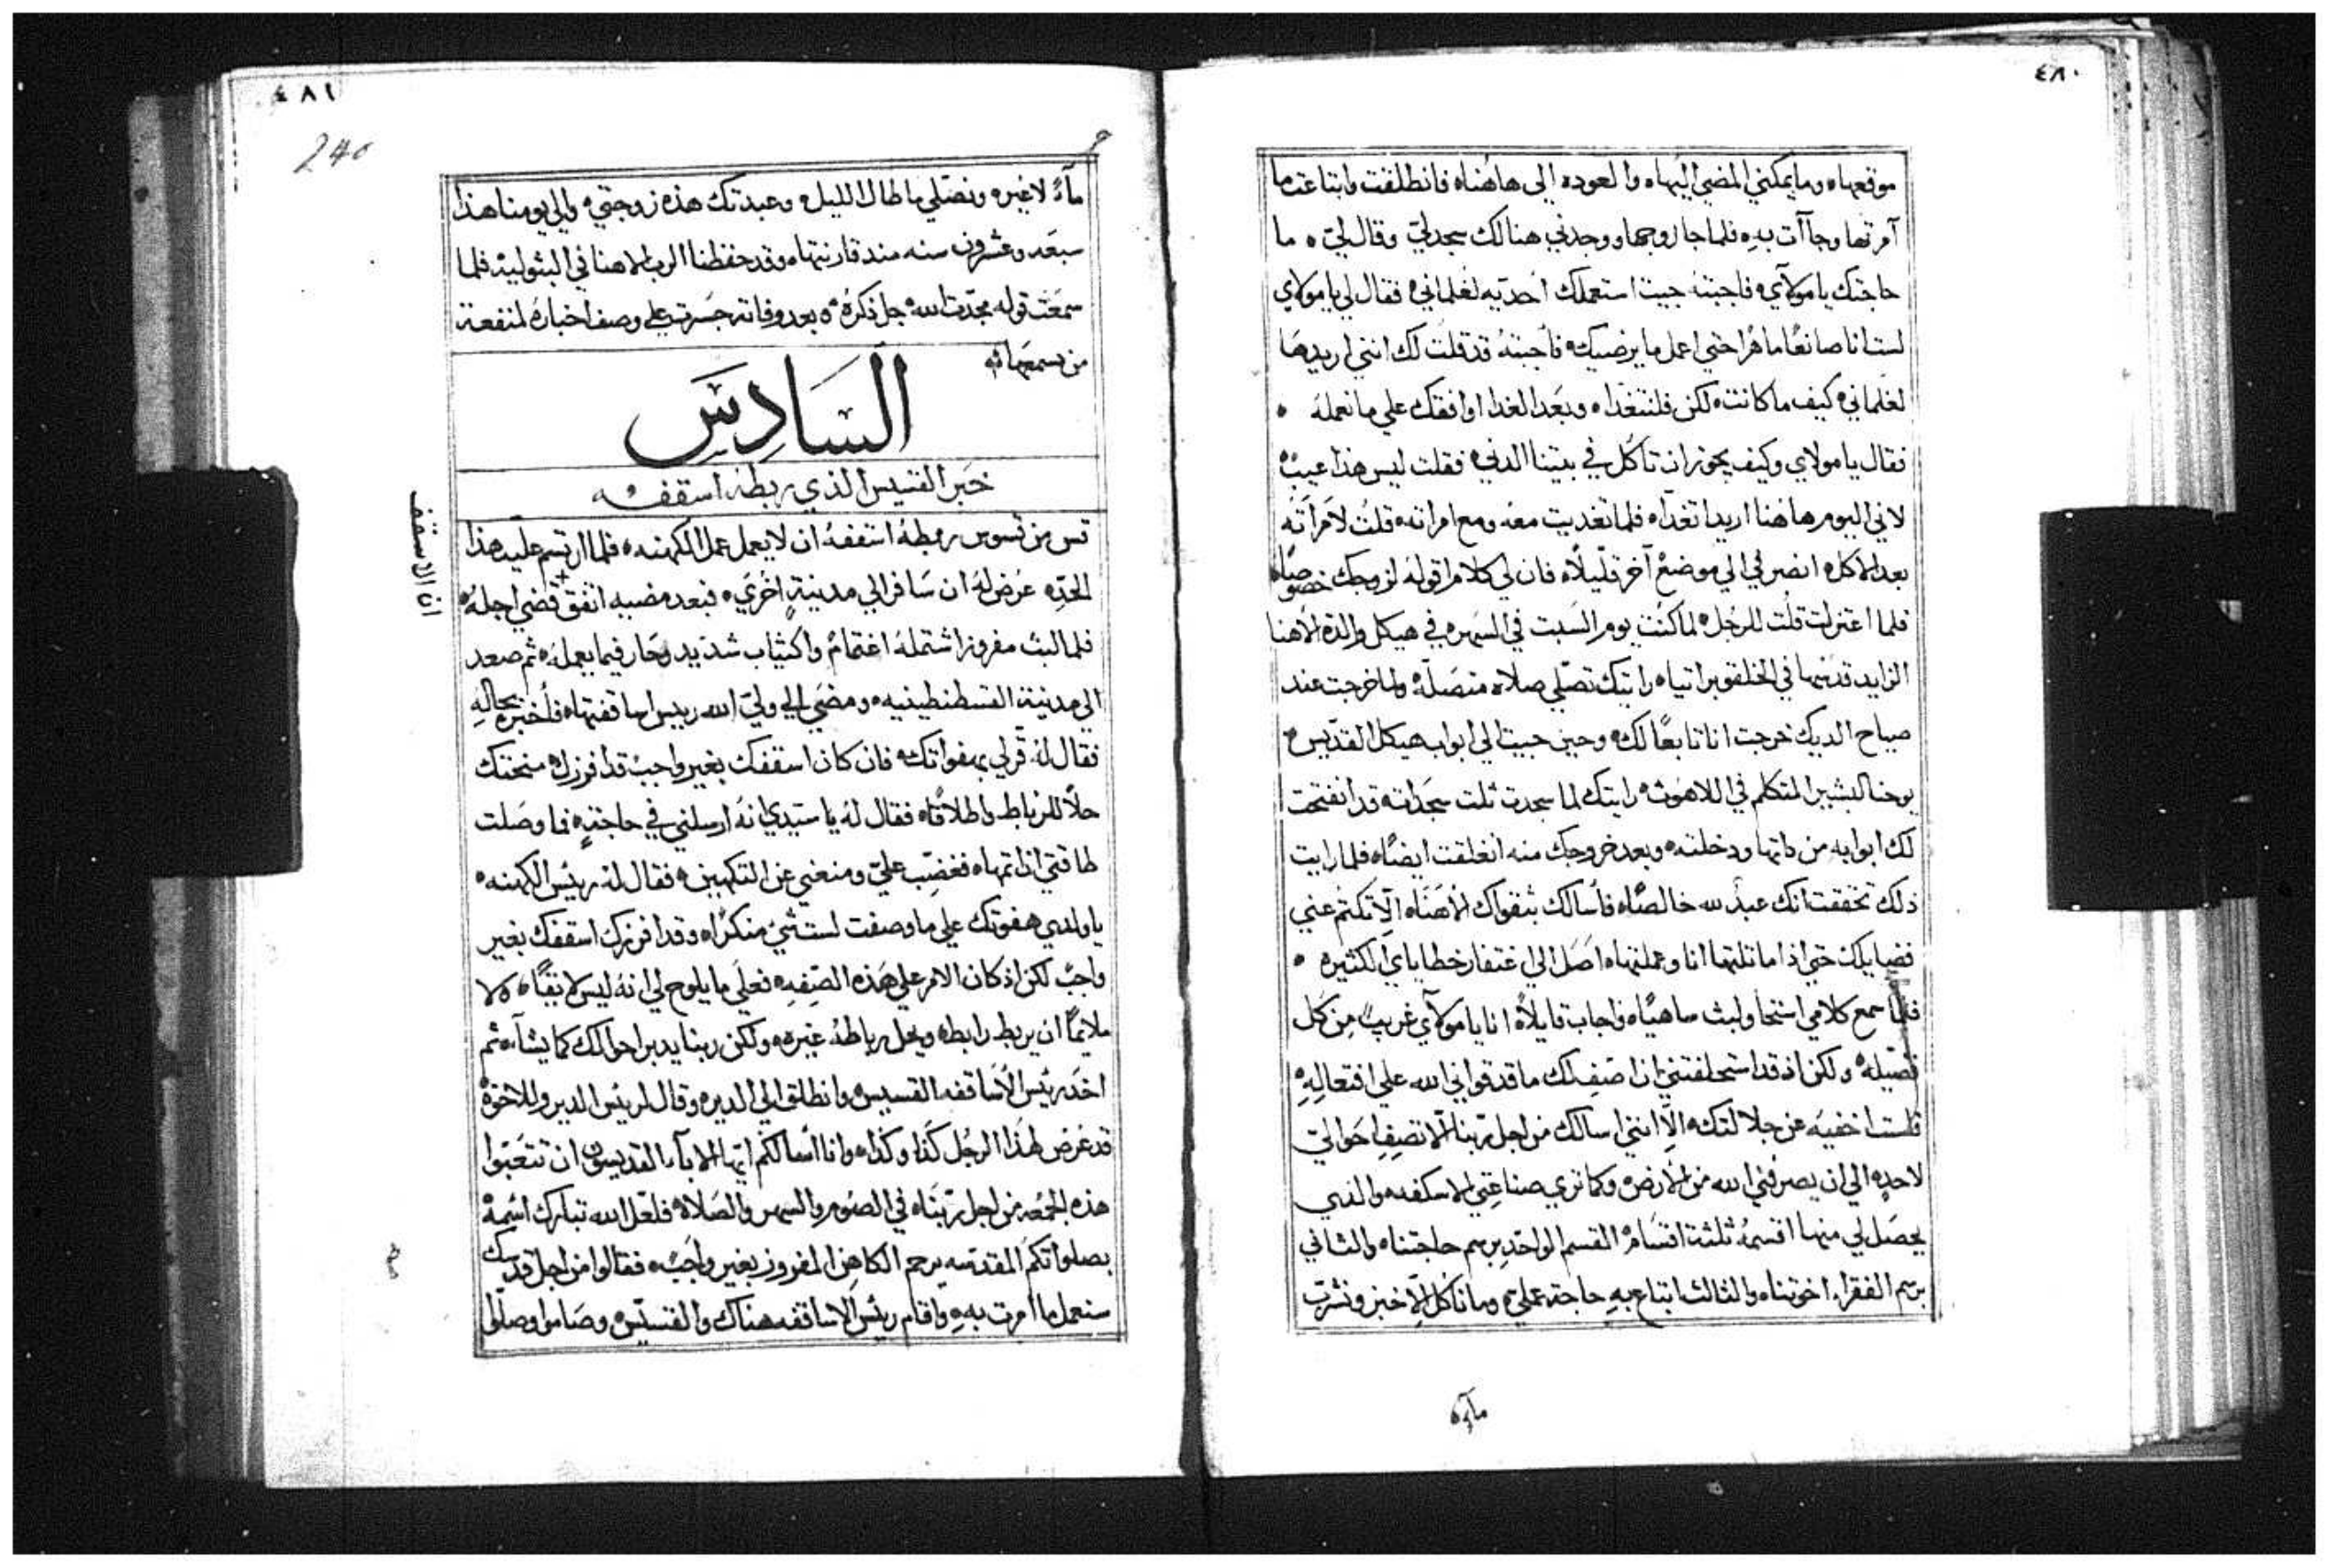 ٤٨٠
موقعها٥ وما يمكنني المضي اليها٥ والعوده الي هاهنا٥ فانطلقت وابتاعت ما
آمرتها وجآات بهِ فلما جا زوجها ووجدني هنالك سجد لي وقال لي ٥ ما
حاجتك يا مولآي٥ فاجبتهُ جيت استعملك احديه لغلماني٥ فقال لي يا مولاي
لست انا صانعًا ماهرًا حتي اعمل ما يرضيك٥ فاجبتهُ قد قلت لك انني اريدها
لغلماني٥ كيف ما كانت٥ لكن فلنتغدا٥ وبعد الغدا اوافقك علي ما نعملهُ ٥
فقال يا مولاي وكيف يجوز ان تاكل في بيتنا الدني٥ فقلت ليس هذا عيبٌ٥
لاني اليوم هاهنا اريد اتغدّا٥ فلما تغديت معهُ ومع امراته٥ قلتُ لامرأته
بعد الاكل٥ انصرفي الي موضعٍ آخر قليلًا٥ فان لي كلام اقولهُ لزوجك خصوصًا٥
فلما اعتزلت قلت للرجل٥ لما كنت يوم السبت في السهر٥ في هيكل والدة الاهنا
الزايد قدسها في الخلقوبراتيا٥ رايتك تصلي صلاه متصلة٥ ولما خرجت عند
صياح الديك خرجت انا تابعًا لك٥ وحين جيت الي ابواب هيكل القديس٥
يوحنا البشير المتكلم في اللاهوت٥ رايتك لما سجدت ثلث سجدات٥ قد انفتحت
لك ابوابه من ذاتها ودخلته٥ وبعد خروجك منه انغلقت ايضًا٥ فلما رايت
ذلك تحققت انك عبدٌ لله خالصًا٥ فأسالك بتقواك لاهنا٥ الّا تكتم عني
فضايلك حتي اذا ما تلتها انا وعملتها٥ اصل الي اغتفار خطاياي الكثيره ٥
فلما سمع كلامي استحا ولبث ساهيًا٥ فاجاب قايلًا٥ انا يا مولآي غريبٌ من كل
فضيله٥ ولكن اذ قد استحلفتني ان اصف لك ما قد قواني الله علي افتعالِهِ٥
فلست اخفيه عن جلالتك٥ الّا انني اسالك من اجل ربنا الّا تصف احوالي
لاحدٍ٥ الي ان يصرفني الله من الارض٥ وكما تري صناعتي الاسكفه٥ والذي
يحصل لي منها اقسمهُ ثلثة اقسام٥ القسم الواحد برسم حاجتنا٥ والثاني
برسم الفقراء اخوتنا٥ والثالث ابتاع بهِ حاجة عملي٥ وما ناكل الّا خبز ونشرب
مآءً
٤٨١
240
مآءً لا غيره ونصلي ما طال الليل٥ وعبدتك هذه زوجتي٥ والي يومنا هذا
سبعه وعشرون سنه منذ قارنتها٥ وقد حفظنا الرب الاهنا في البتوليه٥ فلما
سمعت قوله مجدت الله٥ جل ذكرُهُ٥ وبعد وفاته جسرت علي وصف اخباره لمنفعة
من يسمعها
السَادِسَ
خبر القسيس الذي ربطهُ اسقفه
قس من قسوس ربطهُ اسقفهُ ان لا يعمل عمل الكهنه٥ فلما ارتسم عليه هذا
الحدّ٥ عرض لهُ ان سافر الي مدينةٍ اخري٥ فبعد مضيه اتفق قضي اجلهُ٥
ان الاسقف
فلما لبث مفروزا اشتملهُ اغتمامٌ واكتياب شديد وحار فيما يعملهُ٥ ثم صعد
الي مدينة القسطنطينيه٥ ومضي الي ولي الله رييس اساقفتها٥ فأخبرهُ بحالهِ
فقال لهُ قُر لي بهفواتك٥ فان كان اسقفك بغير واجبٍ قد افرزك٥ منحتك
حلًا للرباط واطلاقا٥ فقال لهُ يا سيدي انهُ ارسلني في حاجةٍ٥ فما وصلت
طاقتي ان اتمها٥ فغضب علي ومنعني عن التكهين٥ فقال لهُ رييس الكهنه٥
يا ولدي هفوتك علي ما وصفت لست شي منكرًا٥ وقد افرزك اسقفك بغير
واجبٍ لكن اذ كان الامر علي هذه الصفه٥ فعلي ما يلوح لي انهُ ليس لايقًا٥ ولا
ملايمًا ان يربط رابط٥ ويحل رباطهُ غيره٥ ولكن ربنا يدبر احوالك كما يشآء٥ ثم
اخذ رييس الاساقفه القسيس٥ وانطلق الي الدير٥ وقال لرييس الدير وللاخوة٥
قد عرض لهذا الرجل كذا وكذا٥ وانا أسالكم ايها الابآء القديسون ان تتعبوا
هذه الجمعه من اجل ربنا٥ في الصوم والسهر والصلاة٥ فلعل الله تبارك اسمهُ٥
بصلواتكم المقدسه يرحم الكاهن المفروز بغير واجبٍ٥ فقالوا من اجل قدسك
سنعمل ما امرت بهِ٥ واقام رييس الاساقفه هناك والقسيس٥ وصاموا وصلوا